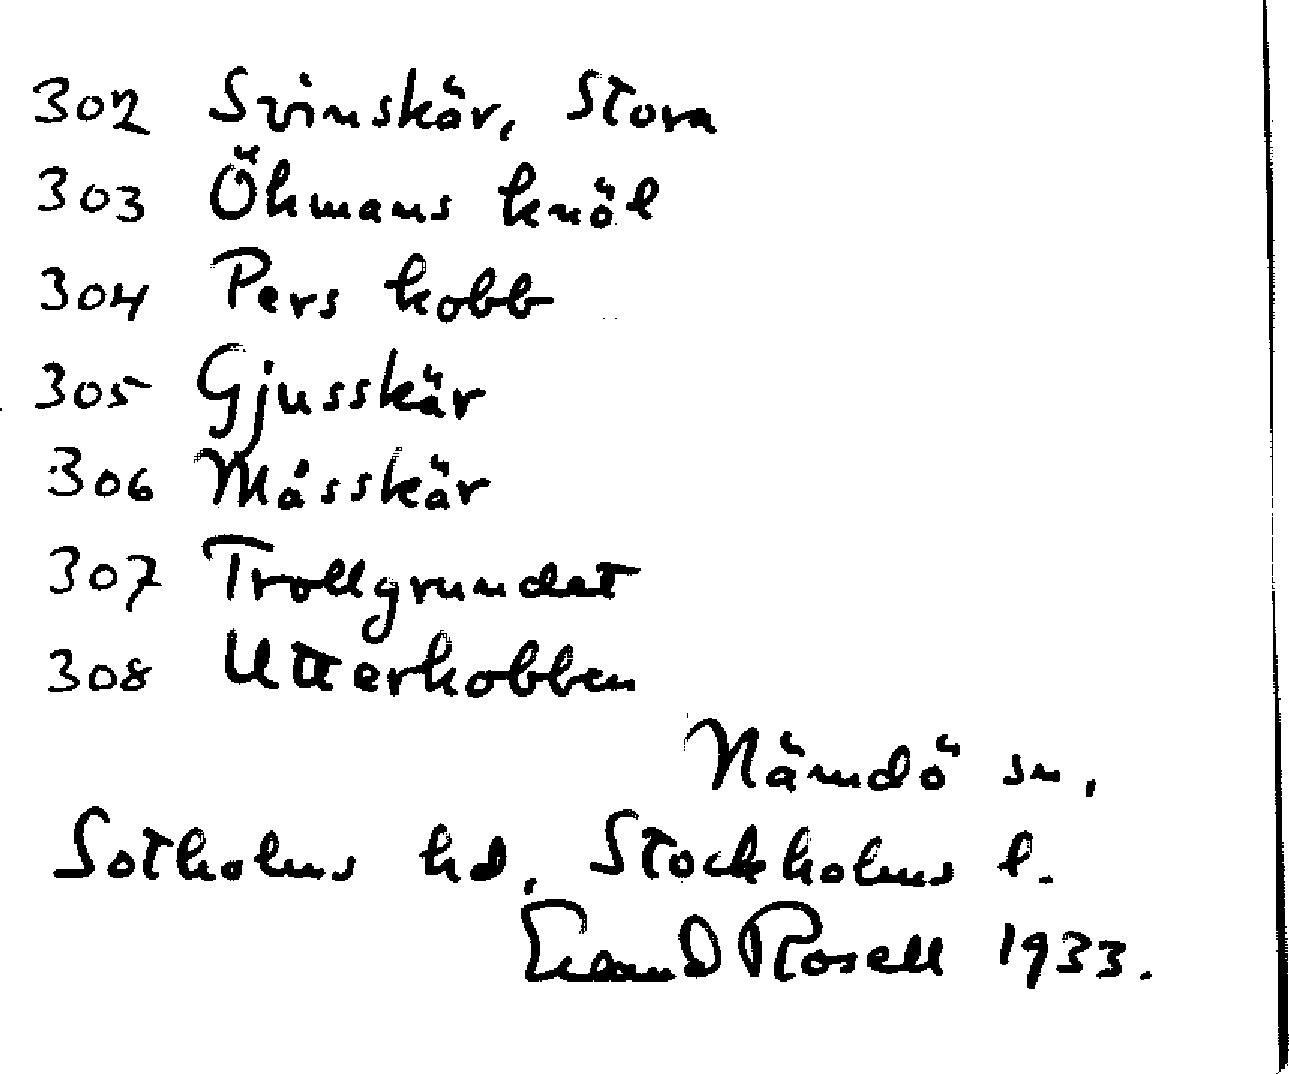 302 Svinskär, Stora
303 Öhmans knöl
304 Pers kobb
305 Gjusskär
306 Måsskär
307 Trollgrundet
308 Utterkobben
Nämdö sn.
Sotholms hd, Stockholms l.
Erland Rosell 1933.